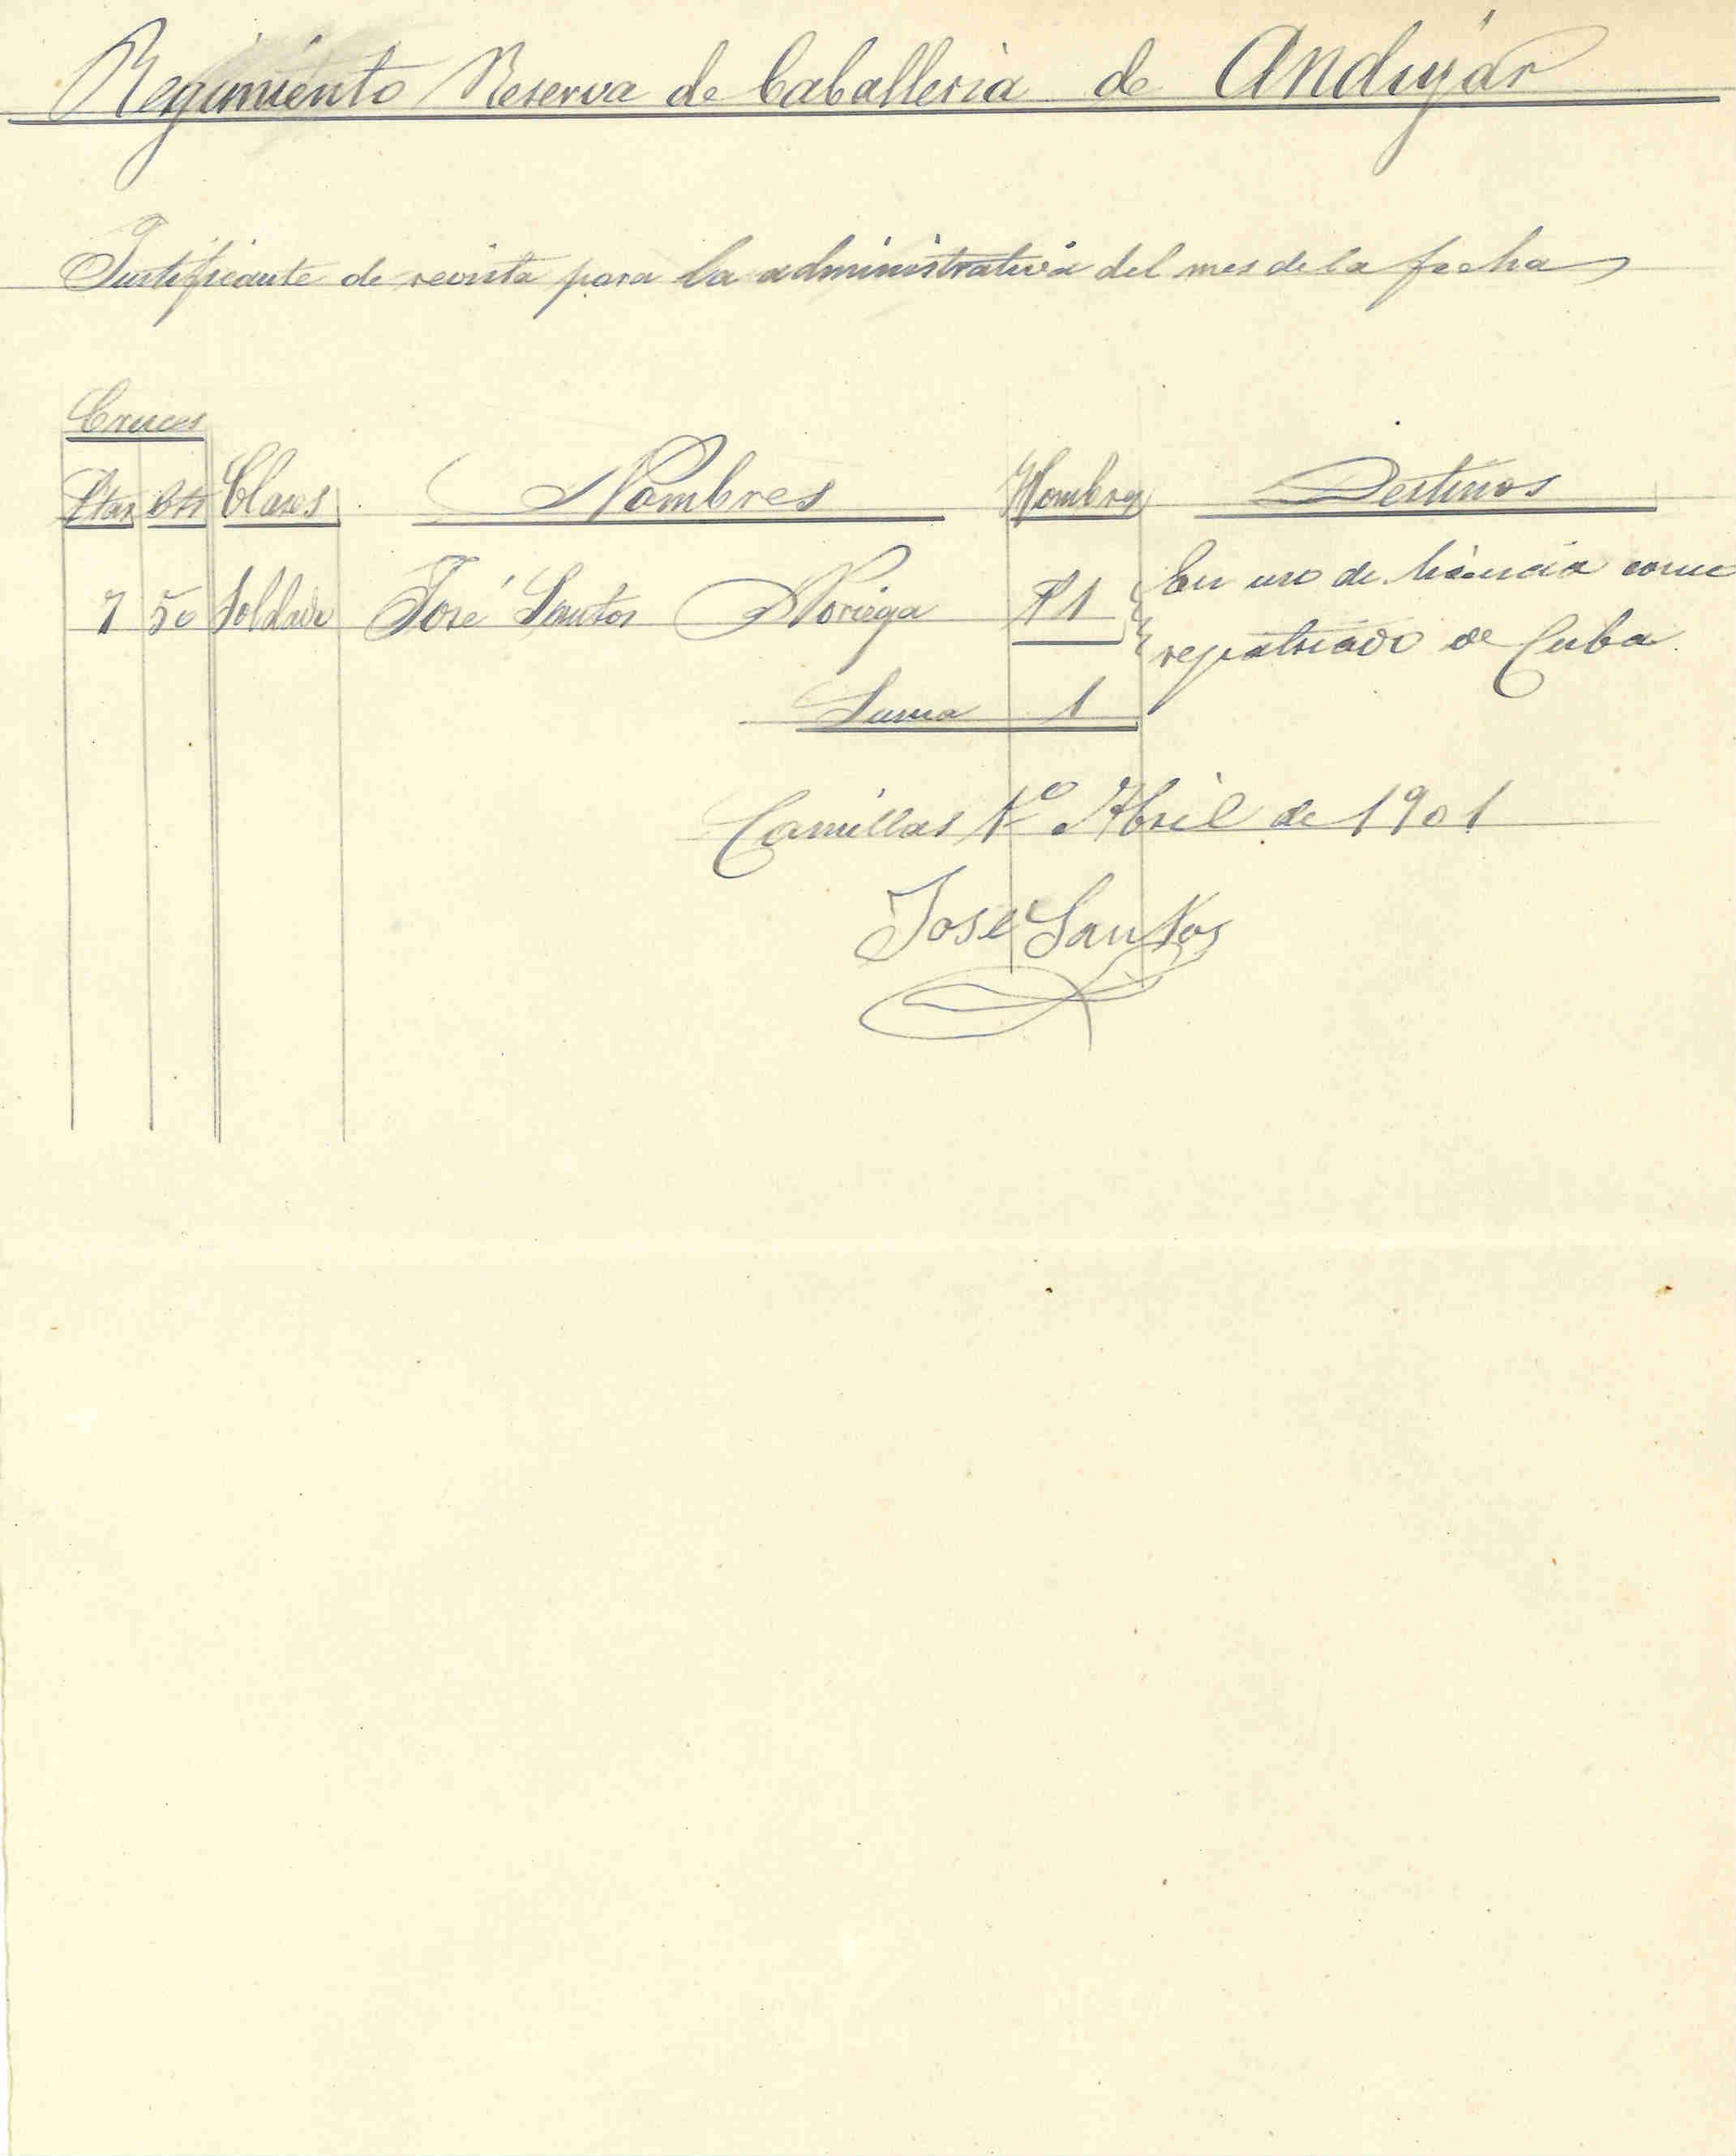 Regimiento Reserva de Caballeria de Andujar
Justificante de revista para la administrativa del mes de la fecha
Cruces
Ptas Cts Clases Nombres Hombres Destinos
7 50 Soldado José Santos Noriega P 1 En uso de licencia como
repatriado de Cuba.
Suma 1
Comillas 1º Abril de 1901
José Santos